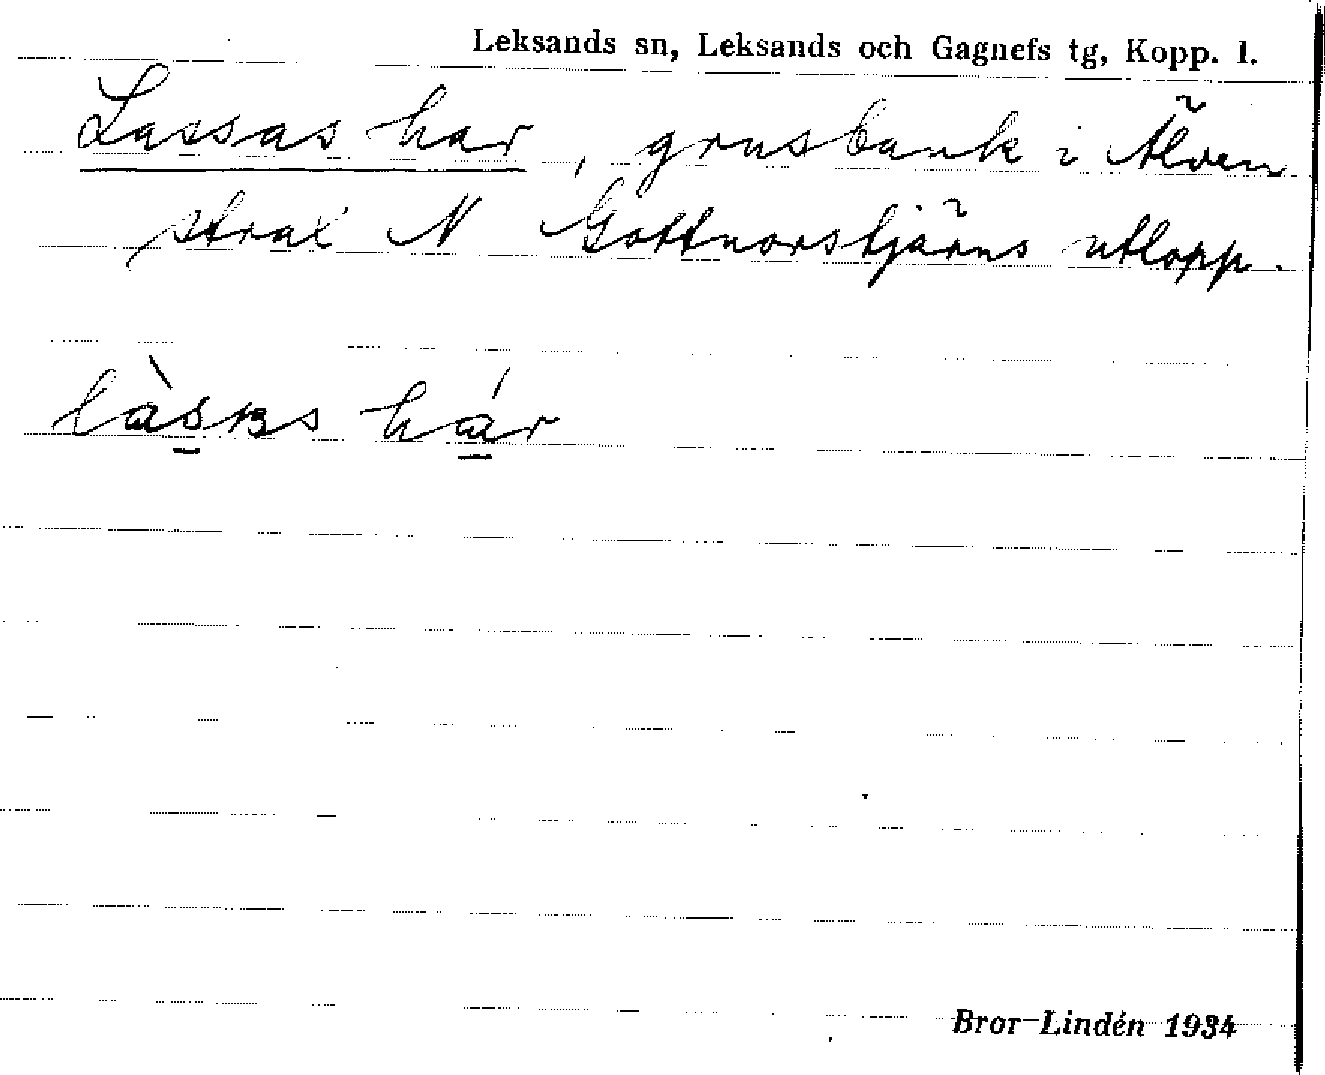 Leksands sn, Leksands och Gagnefs tg, Kopp. l.
Lassas har, grusbank i Älven
strax N Gottnorstjärns utlopp.
hár
Bror Lindén 1934